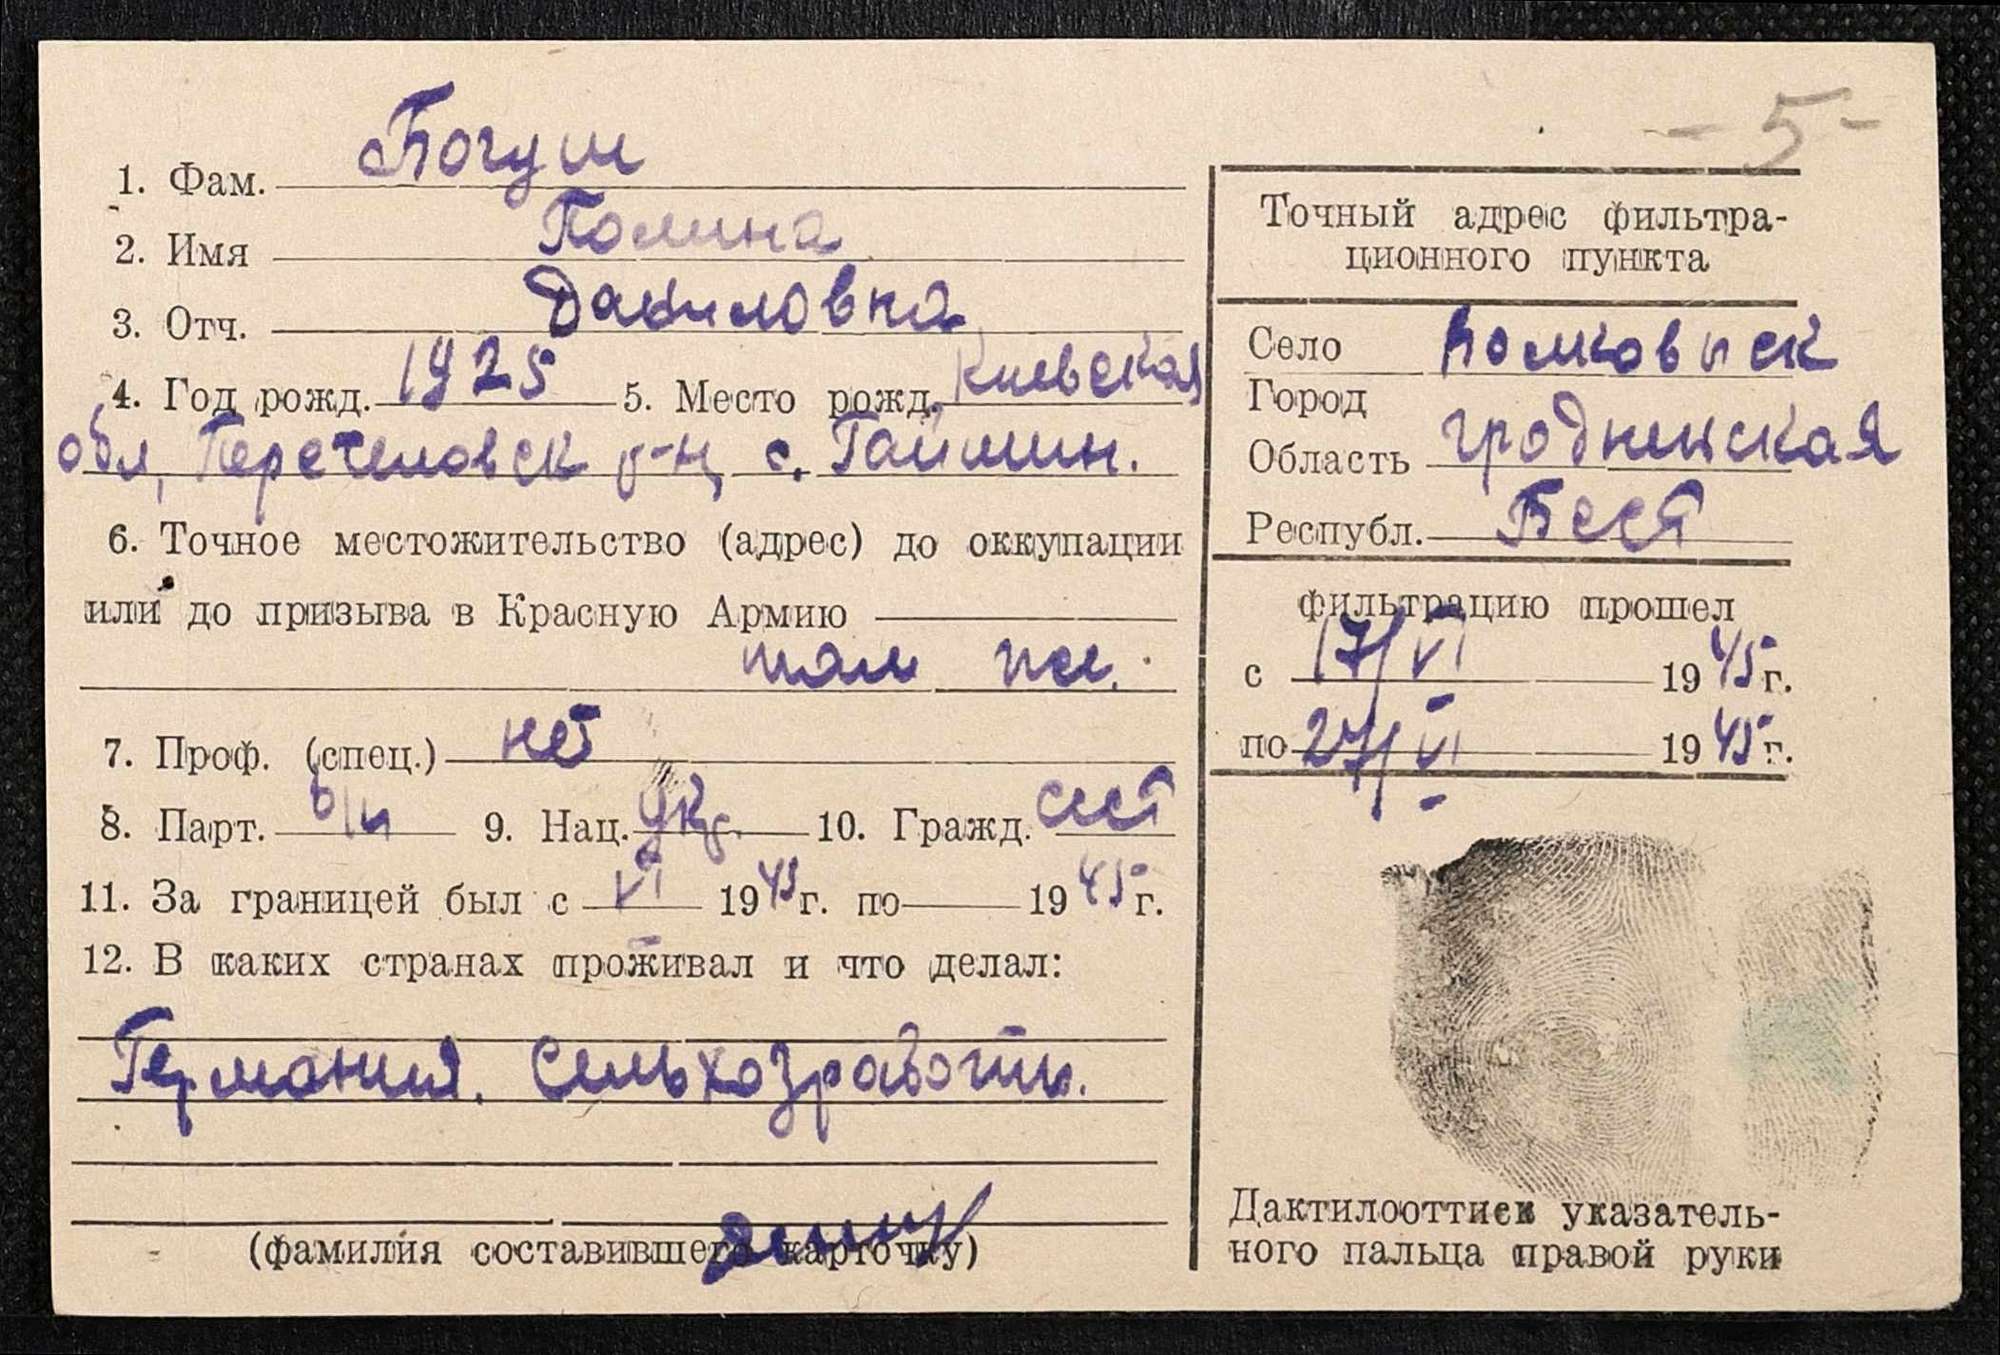 - 5 -
1. Фам. Богуш
2. Имя Полина
3. Отч. Даниловна
4. Год рожд. 1925 5. Место рожд. Киевская
обл, р-н, с. Гайшин.
6. Точное местожительство (адрес) до оккупации
или до призыва в Красную Армию
там же.
7. Проф. (спец.) нет
8. Парт. б/п 9. Нац. Укр. 10. Гражд. СССР
11. За границей был с VI 1943 г. по 1945 г.
12. В каких странах проживал и что делал:
Германия. Сельхозработы.
(фамилия составившего карточку)
Точный адрес фильтра-
ционного пункта
Село Волковыск
Город
Область Гродненская
Республ. БССР
фильтрацию прошел
с 17/VI 1945 г.
по 27/VI 1945 г.
Дактилооттиск указатель-
ного пальца правой руки